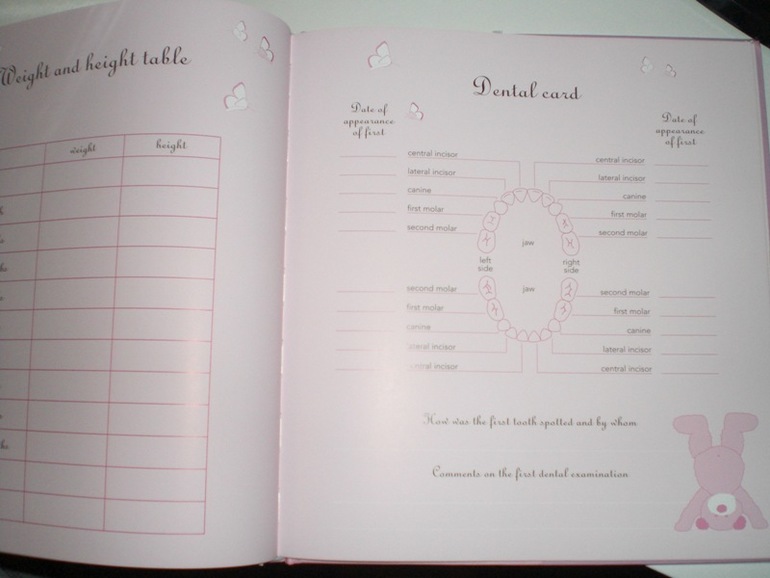 Weight and height table
weight height
Dental card
Date of
appearance
of first
Date of
appearance
of first
central incisor
lateral incisor
canine
first molar
second molar
central incisor
lateral incisor
canine
first molar
second molar
jaw
left
side
right
side
jaw
second molar
first molar
canine
lateral incisor
central incisor
second molar
first molar
canine
lateral incisor
central incisor
How was the first tooth spotted and by whom
Comments on the first dental examination